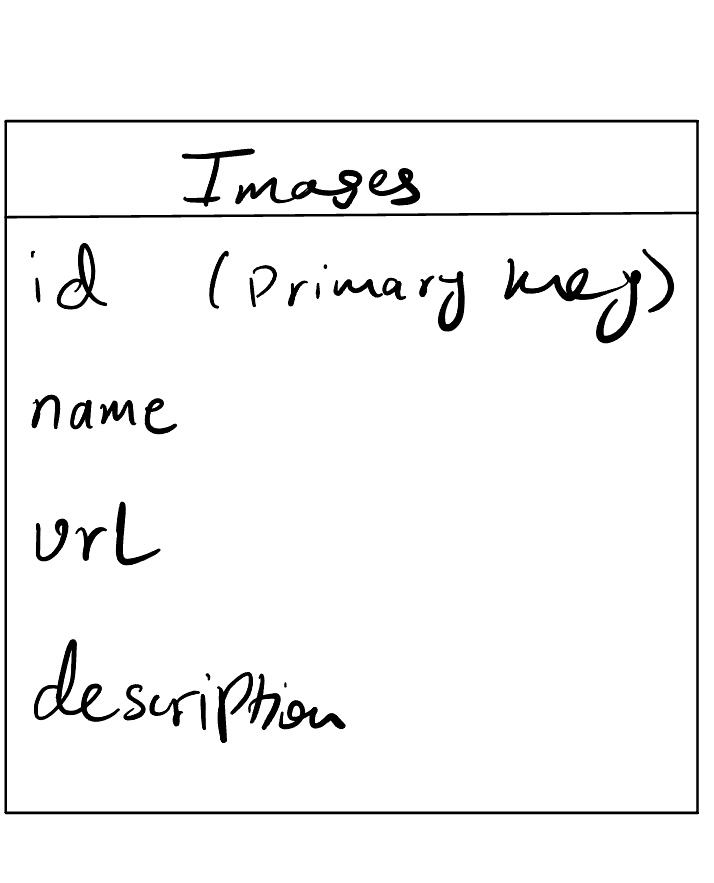 Images
id (primary key)
name
url
description